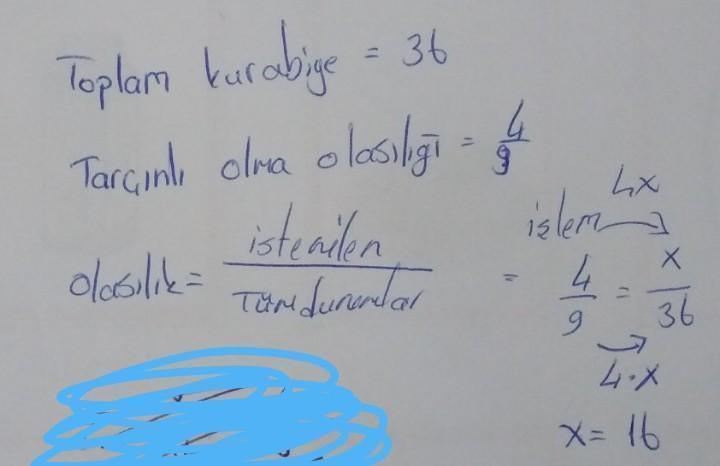 Toplam kurabiye = 36
Tarçınlı olma olasılığı = 4/9
olasılık = istenilen / Tüm durumlar = 4/9 = x/36
işlem 4x
4·x
x = 16